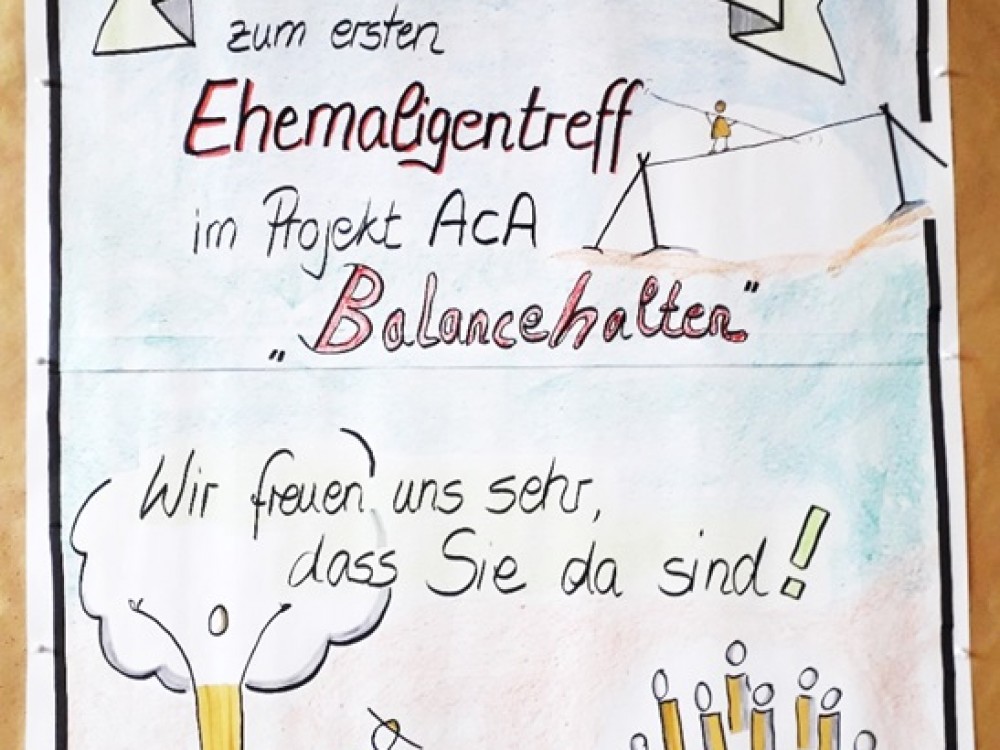 zum ersten
Ehemaligentreff
im Projekt AcA
„Balancehalten"
Wir freuen uns sehr,
dass Sie da sind!